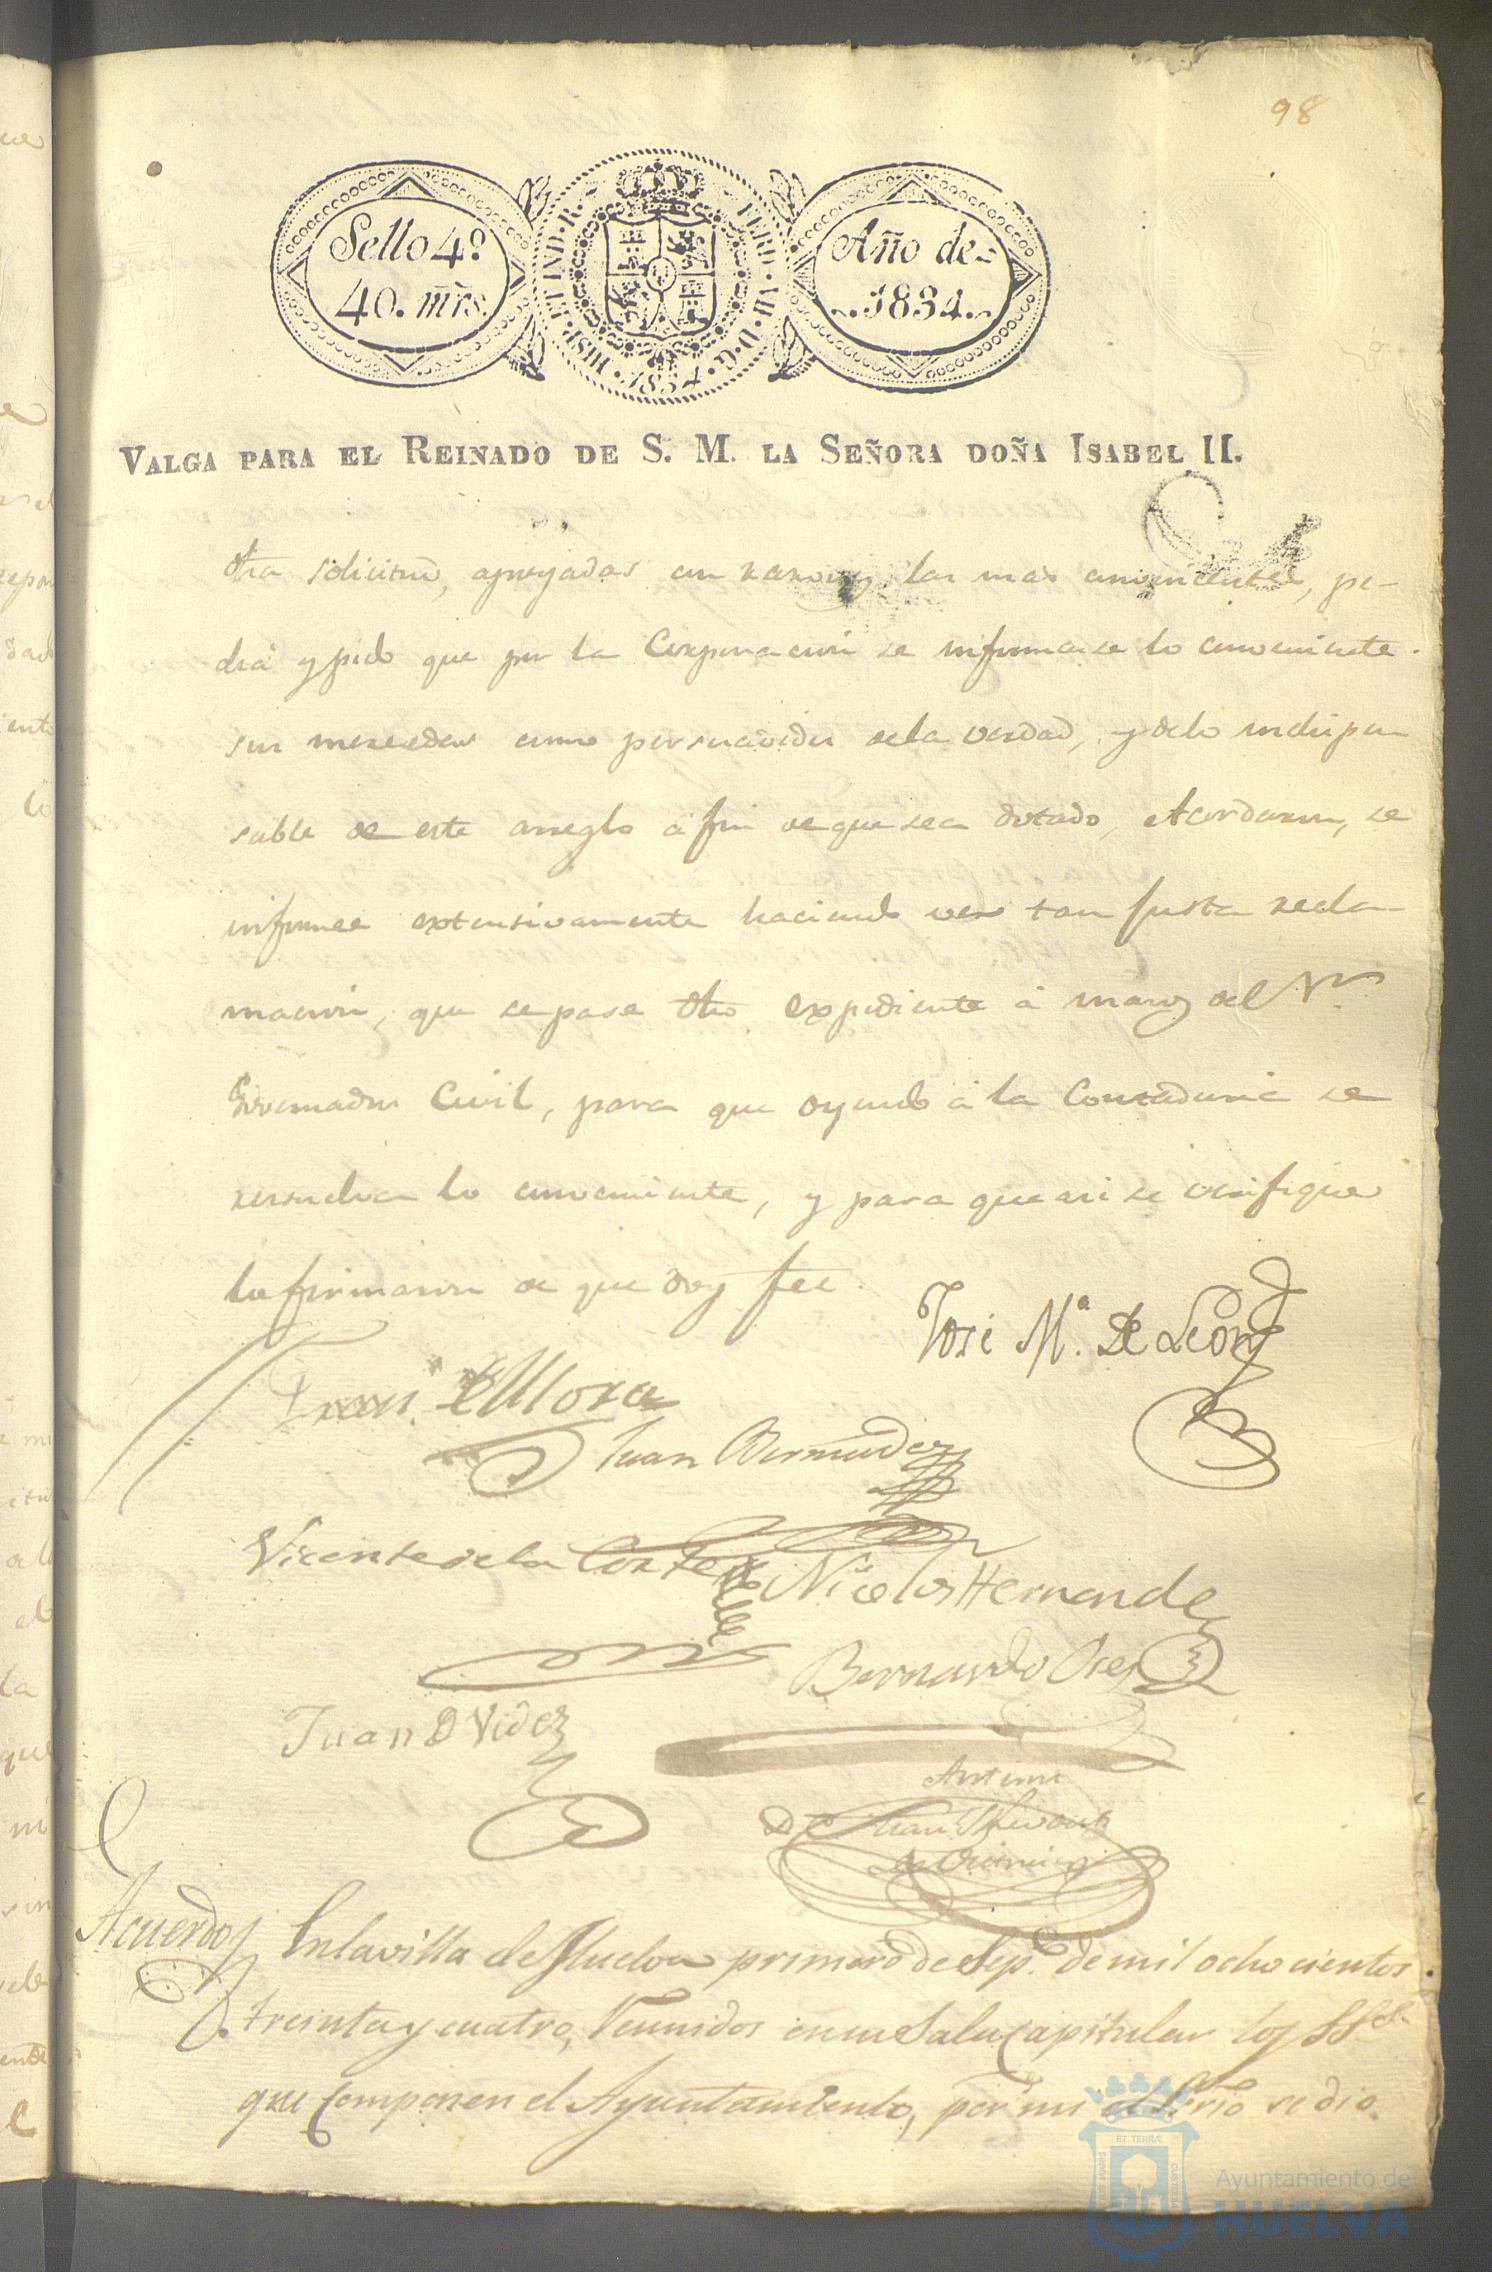 98
Sello 4º
40. mrs.
HISP. ET IND. R.
FERD. VII. D. G.
1834.
Año de
1834.
VALGA PARA EL REINADO DE S. M. LA SEÑORA DOÑA ISABEL II.
dha solicitud, apoyadas en razones las mas convenientes, pe-
dia y pido que por la Corporacion se informase lo conveniente.
sus mercedes como persuadidos de la verdad, y delo indispen
sable de este arreglo á fin de que sea dotado, Acordaron, se
informe extensivamente haciendo ver tan justa recla-
macion, que se pase dho expediente á manos del Sr.
Governador Civil, para que oyendo á la Contaduria se
resuelva lo conveniente, y para que asi se verifique
lo firmaron de que doy fee.
José Mª. De Leon
de Mora
Juan Bermudez
Vicente de la Corte
Nicolas Hernandez
Bernardo
Juan D Videz
Antemi
Juan
Acuerdo
En la villa de Huelva primero de Sepe. de mil ocho cientos
treinta y cuatro, Reunidos en su Sala Capitular los SSes.
que Componen el Ayuntamiento, por mi el Srio se dio
ET TERRÆ
MARIS
CUSTODIA
Ayuntamiento de
HUELVA